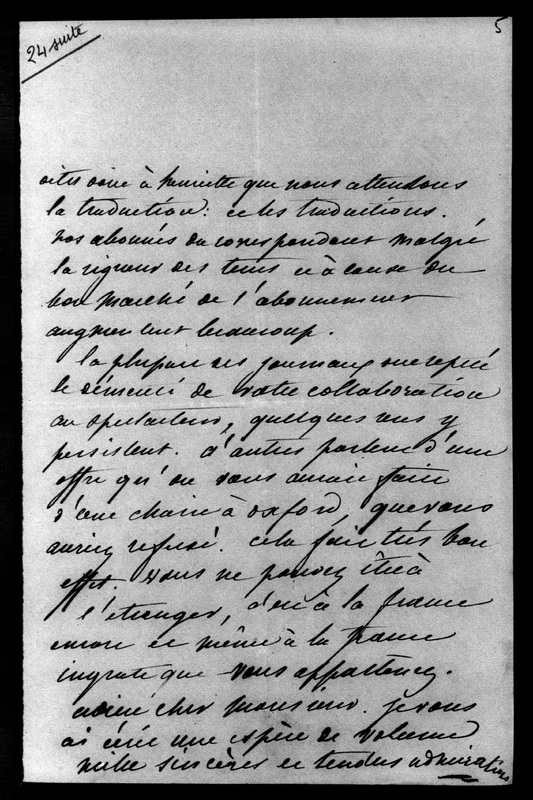 24 suite
5
dites donc à henriette que nous attendons
la traduction : et les traductions.
nos abonnés du correspondant malgré
la rigueur des tems et à cause du
bon marché de l'abonnement
augmentent beaucoup.
la plupart des journaux ont repété
le démenti de votre collaboration
au spectateur, quelques uns y
persistent. d'autres parlent d'une
offre qu'on vous aurait faite
d'une chaire à oxford, que vous
auriez refusé. cela fait très bon
effet, vous ne pouvez être à
l'étranger, c'est à la france
encore et même à la france
ingrate que vous appartenez.
adieu cher monsieur. je vous
ai écrit une espèce de volume
mille sincères et tendres admirations